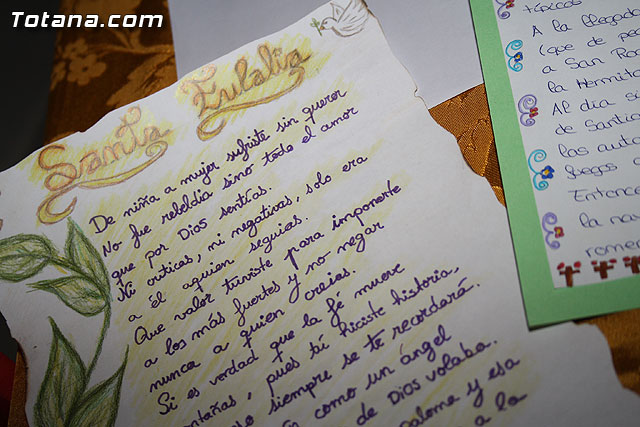 Totana.com
Santa Eulalia
De niña a mujer sufriste sin querer
No fue rebeldía sino todo el amor
que por Dios sentías.
Ni criticas, ni negativas, solo era
a él aquien seguias.
Que valor tuviste para imponerte
a los más fuertes y no negar
nunca a quien creías.
Si es verdad que la fé mueve
montañas, pues tú hiciste historia,
siempre se te recordará.
como un ángel
de Dios volaba.
Paloma y esa
a la
típicos
A la llegada
(que de pe
a San Ro
la Hermita
Al día si
de Santia
las auto
fuegos
Enton
la na
rome